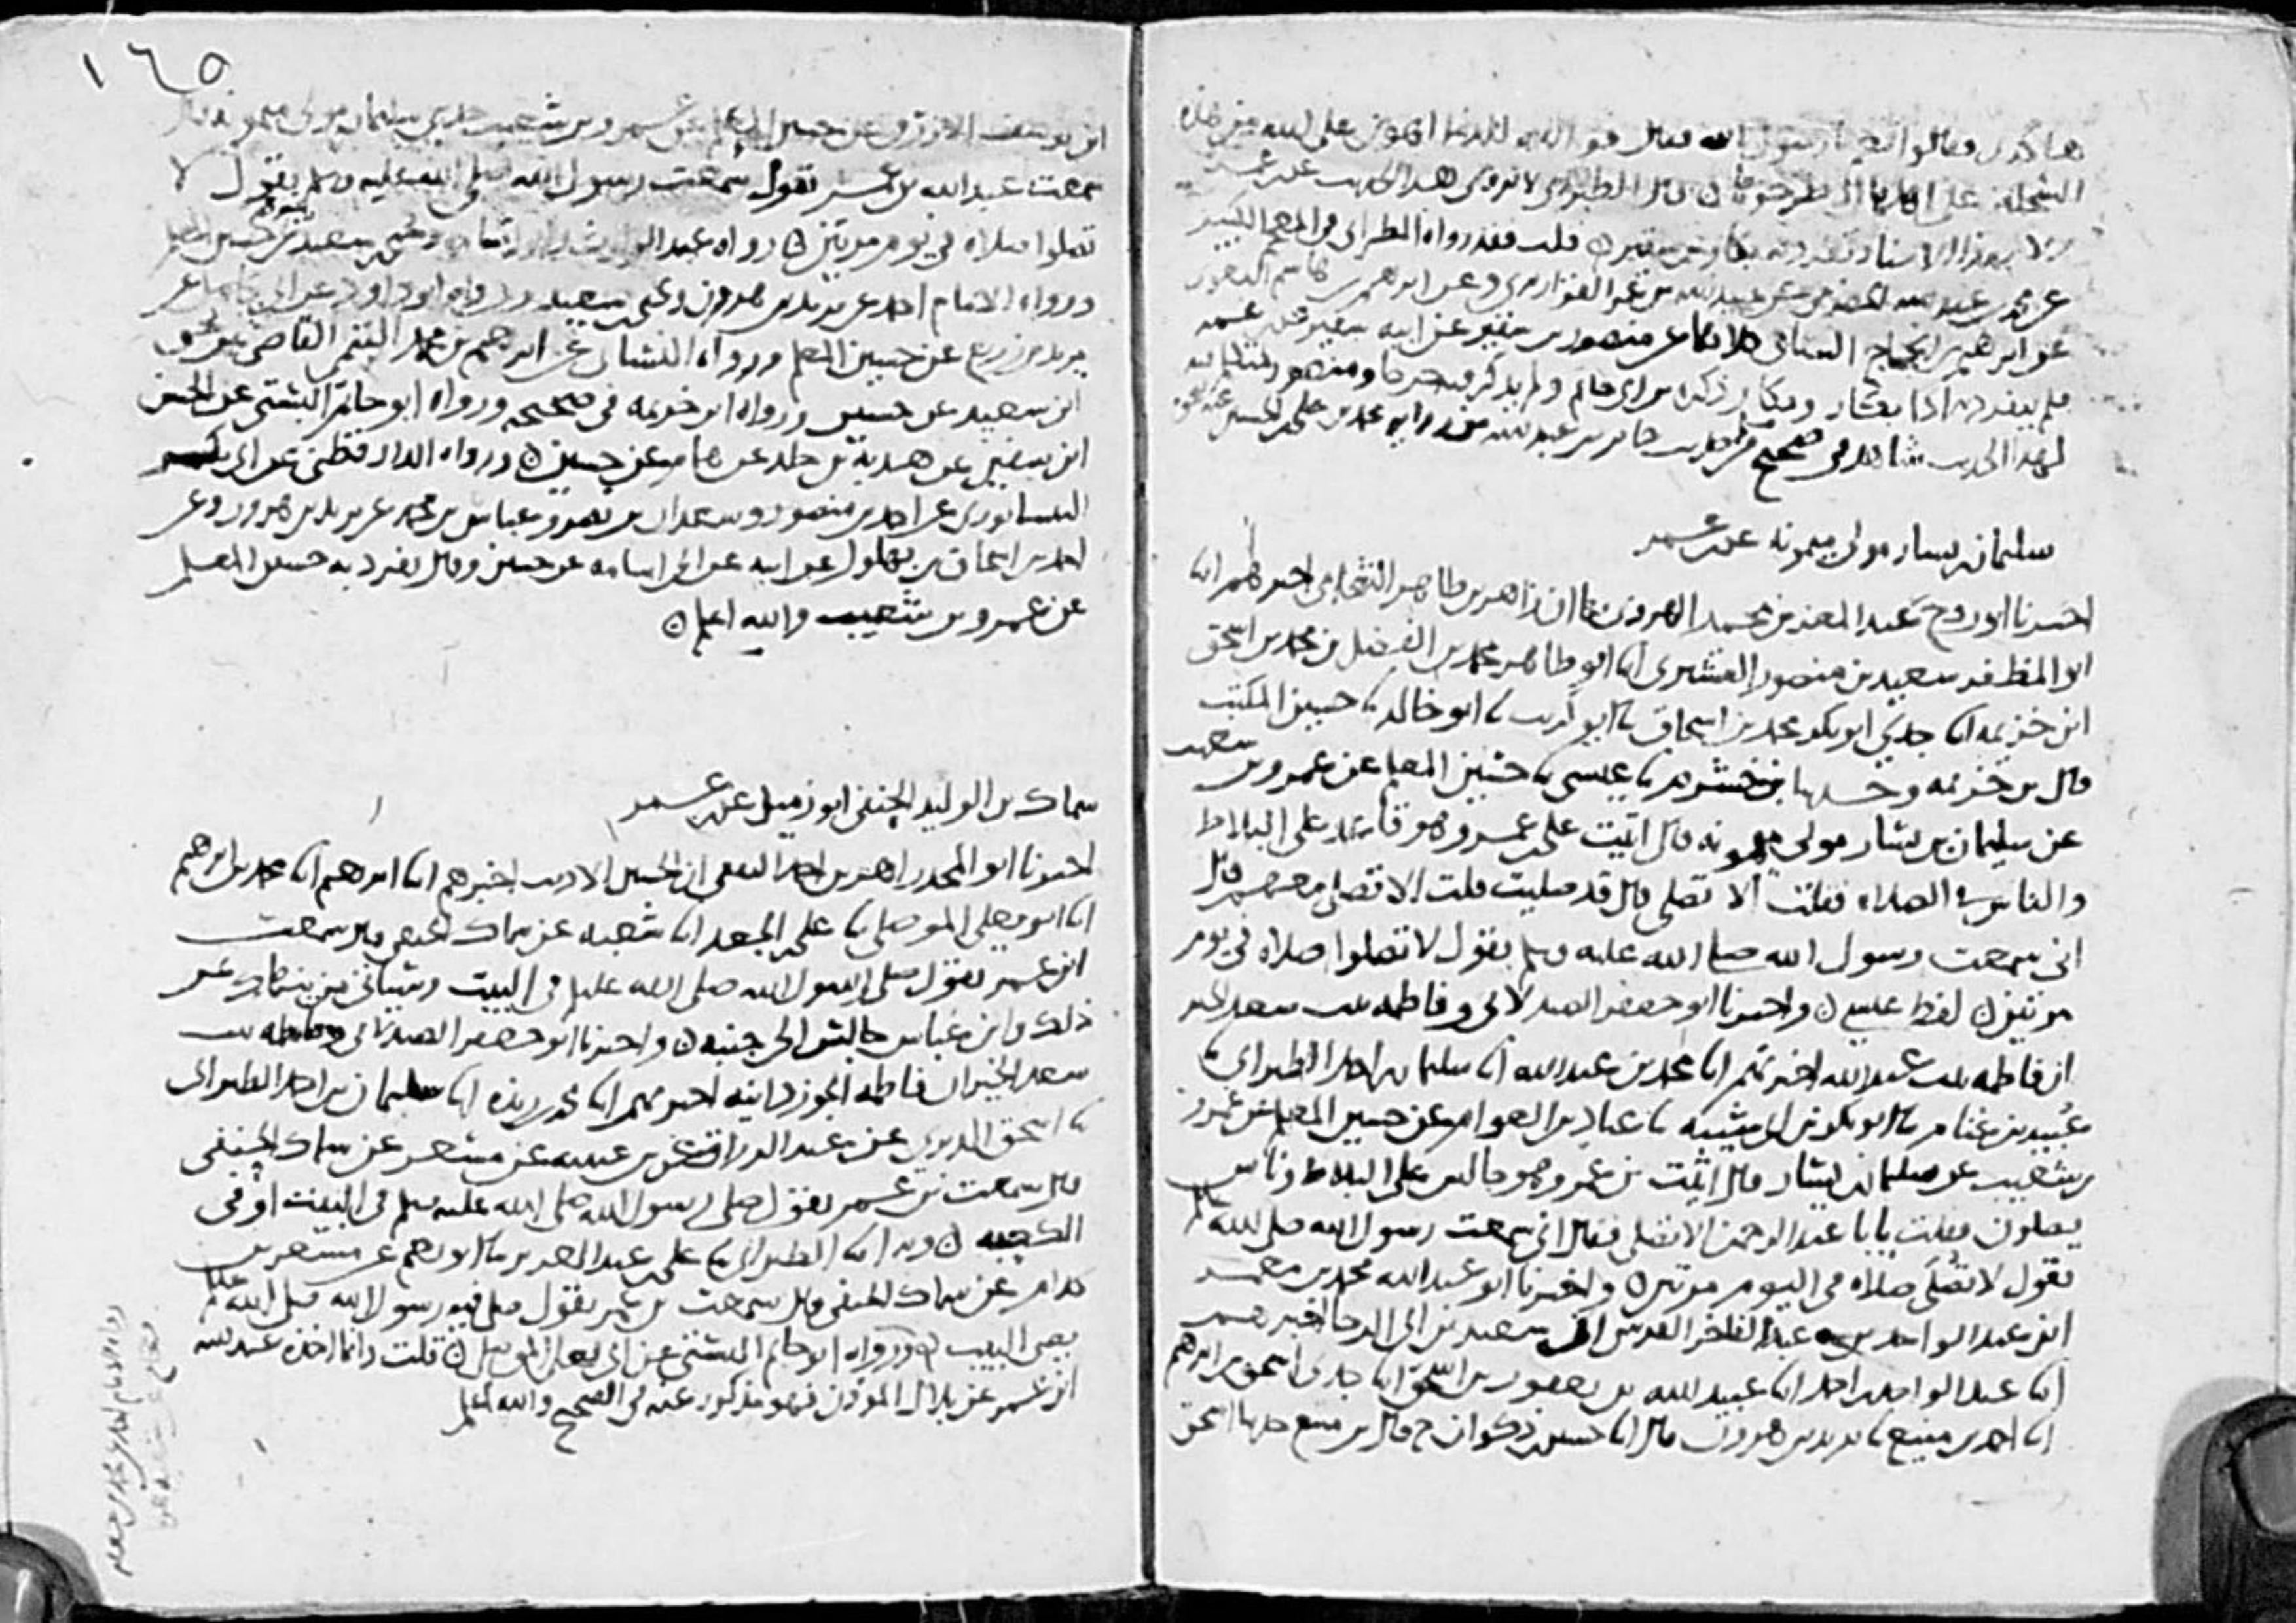 فقالوا نعم يا رسول الله فقال فوالله للدنيا اهون على الله من هذه
السخلة على اهلها قال الطبراني لا يروى هذا الحديث عن ابن عمر
الا بهذا الاسناد تفرد به بكار بن سقير قلت فقد رواه الطبراني في المعجم الكبير
عن محمد بن عبد الله الحضرمي عن عبيد الله بن عمر القواريري وعن ابرهيم بن هاشم البغوي
عن ابرهيم بن الحجاج السامي كلاهما عن منصور بن سقير عن ابيه سقير عن ابن عمر
فلم يتفرد به اذا بكار وبكار ذكره بن ابي حاتم ولم يذكر فيه جرحا ومنصور
لهذا الحديث شاهد في صحيح من حديث جابر بن عبد الله من رواية محمد بن علي بن الحسين عنه
سليمان بن يسار مولى ميمونه عن ابن عمر
اخبرنا ابو روح عبد المعز بن محمد الهروي بها ان زاهر بن طاهر الشحامي اخبرهم ابنا
ابو المظفر سعيد بن منصور القشيري ابنا ابو طاهر محمد بن الفضل بن محمد بن اسحق
ابن خزيمه ابنا جدي ابو بكر محمد بن اسحاق نا ابو كريب نا ابو خالد نا حسين المكتب
قال بن خزيمه وحدثنا علي بن خشرم نا عيسى نا حسين المعلم عن عمرو بن شعيب
عن سليمان بن يسار مولى ميمونه قال اتيت على ابن عمر وهو قاعد على البلاط
والناس في الصلاه فقلت الا تصلي قال قد صليت قلت الا تصلي معهم قال
اني سمعت رسول الله صلى الله عليه وسلم يقول لا تصلوا صلاه في يوم
مرتين لفظ عيسى واخبرنا ابو جعفر الصيدلاني وفاطمه بنت سعد الخير
ان فاطمه بنت عبد الله اخبرتهم ابنا محمد بن عبد الله ابنا سليمان بن احمد الطبراني نا
عبيد بن غنام نا ابو بكر بن ابي شيبه نا عباد بن العوام عن حسين المعلم عن عمرو
بن شعيب عن سليمان بن يسار قال اتيت بن عمر وهو جالس على البلاط وناس
يصلون فقلت يابا عبد الرحمن الا تصلي فقال اني سمعت رسول الله صلى الله عليه وسلم
يقول لا تصلى صلاه في اليوم مرتين واخبرنا ابو عبد الله محمد بن معمر
ابن عبد الواحد بن عبد الفاخر القرشي ان سعيد بن ابي الرجا اخبرهم
ابنا عبد الواحد بن احمد ابنا عبيد الله بن يعقوب بن اسحق ابنا جدي اسحق بن ابرهيم
ابنا احمد بن منيع نا يزيد بن هرون قال ابنا حسين بن ذكوان ح قال بن منيع حدثنا اسحق
١٦٥
ابن يوسف الازرق عن حسين المعلم عن عمرو بن شعيب حدثني سليمان مولى ميمونه قال
سمعت عبد الله بن عمر يقول سمعت رسول الله صلى الله عليه وسلم يقول لا
تصلوا صلاه في يوم مرتين رواه عبد الله وعن يحيى بن سعيد عن حسين
ورواه الامام احمد عن يزيد بن هرون وعن يحيى بن سعيد ورواه ابو داود عن ابي كامل عن
يزيد بن زريع عن حسين المعلم ورواه النسائي عن ابرهيم بن محمد التيمي القاضي عن يحيى
ابن سعيد عن حسين ورواه ابن خزيمه في صحيحه ورواه ابو حاتم البستي عن الحسن
ابن سفين عن هدبة بن خالد عن همام عن حسين ورواه الدارقطني عن ابي بكر
النيسابوري عن احمد بن منصور وسعدان بن نصر وعباس بن محمد عن يزيد بن هرون وعن
احمد بن اسحاق بن بهلول عن ابيه عن ابي اسامه عن حسين وقال تفرد به حسين المعلم
عن عمرو بن شعيب والله اعلم
سماك بن الوليد الحنفي ابو زميل عن ابن عمر
اخبرنا ابو المجد زاهر بن احمد الثقفي ان الحسين الاديب اخبرهم ابنا ابرهيم ابنا محمد بن ابرهيم
ابنا ابو يعلى الموصلي نا علي بن الجعد ابنا شعبه عن سماك الحنفي قال سمعت
ابن عمر يقول صلى رسول الله صلى الله عليه وسلم في البيت وسياتي من ينهاك عن
ذلك وابن عباس جالس الى جنبه واخبرنا ابو جعفر الصيدلاني وفاطمه بنت
سعد الخير ان فاطمه الجوزدانيه اخبرتهم ابنا محمد بن ريذه ابنا سليمان بن احمد الطبراني
نا اسحق الدبري عن عبد الرزاق عن بن عيينه عن مسعر عن سماك الحنفي
قال سمعت بن عمر يقول صلى رسول الله صلى الله عليه وسلم في البيت او في
الكعبه وبه ابنا الطبراني نا علي بن عبد العزيز نا ابو نعيم عن مسعر بن
كدام عن سماك الحنفي قال سمعت بن عمر يقول صلى فيه رسول الله صلى الله عليه وسلم
يعني البيت ورواه ابو حاتم البستي عن ابي يعلى الموصلي قلت وانما اخذه عبد الله
ابن عمر عن بلال الموذن فهو مذكور عنه في الصحيح والله اعلم
رواه الامام احمد عن محمد بن جعفر